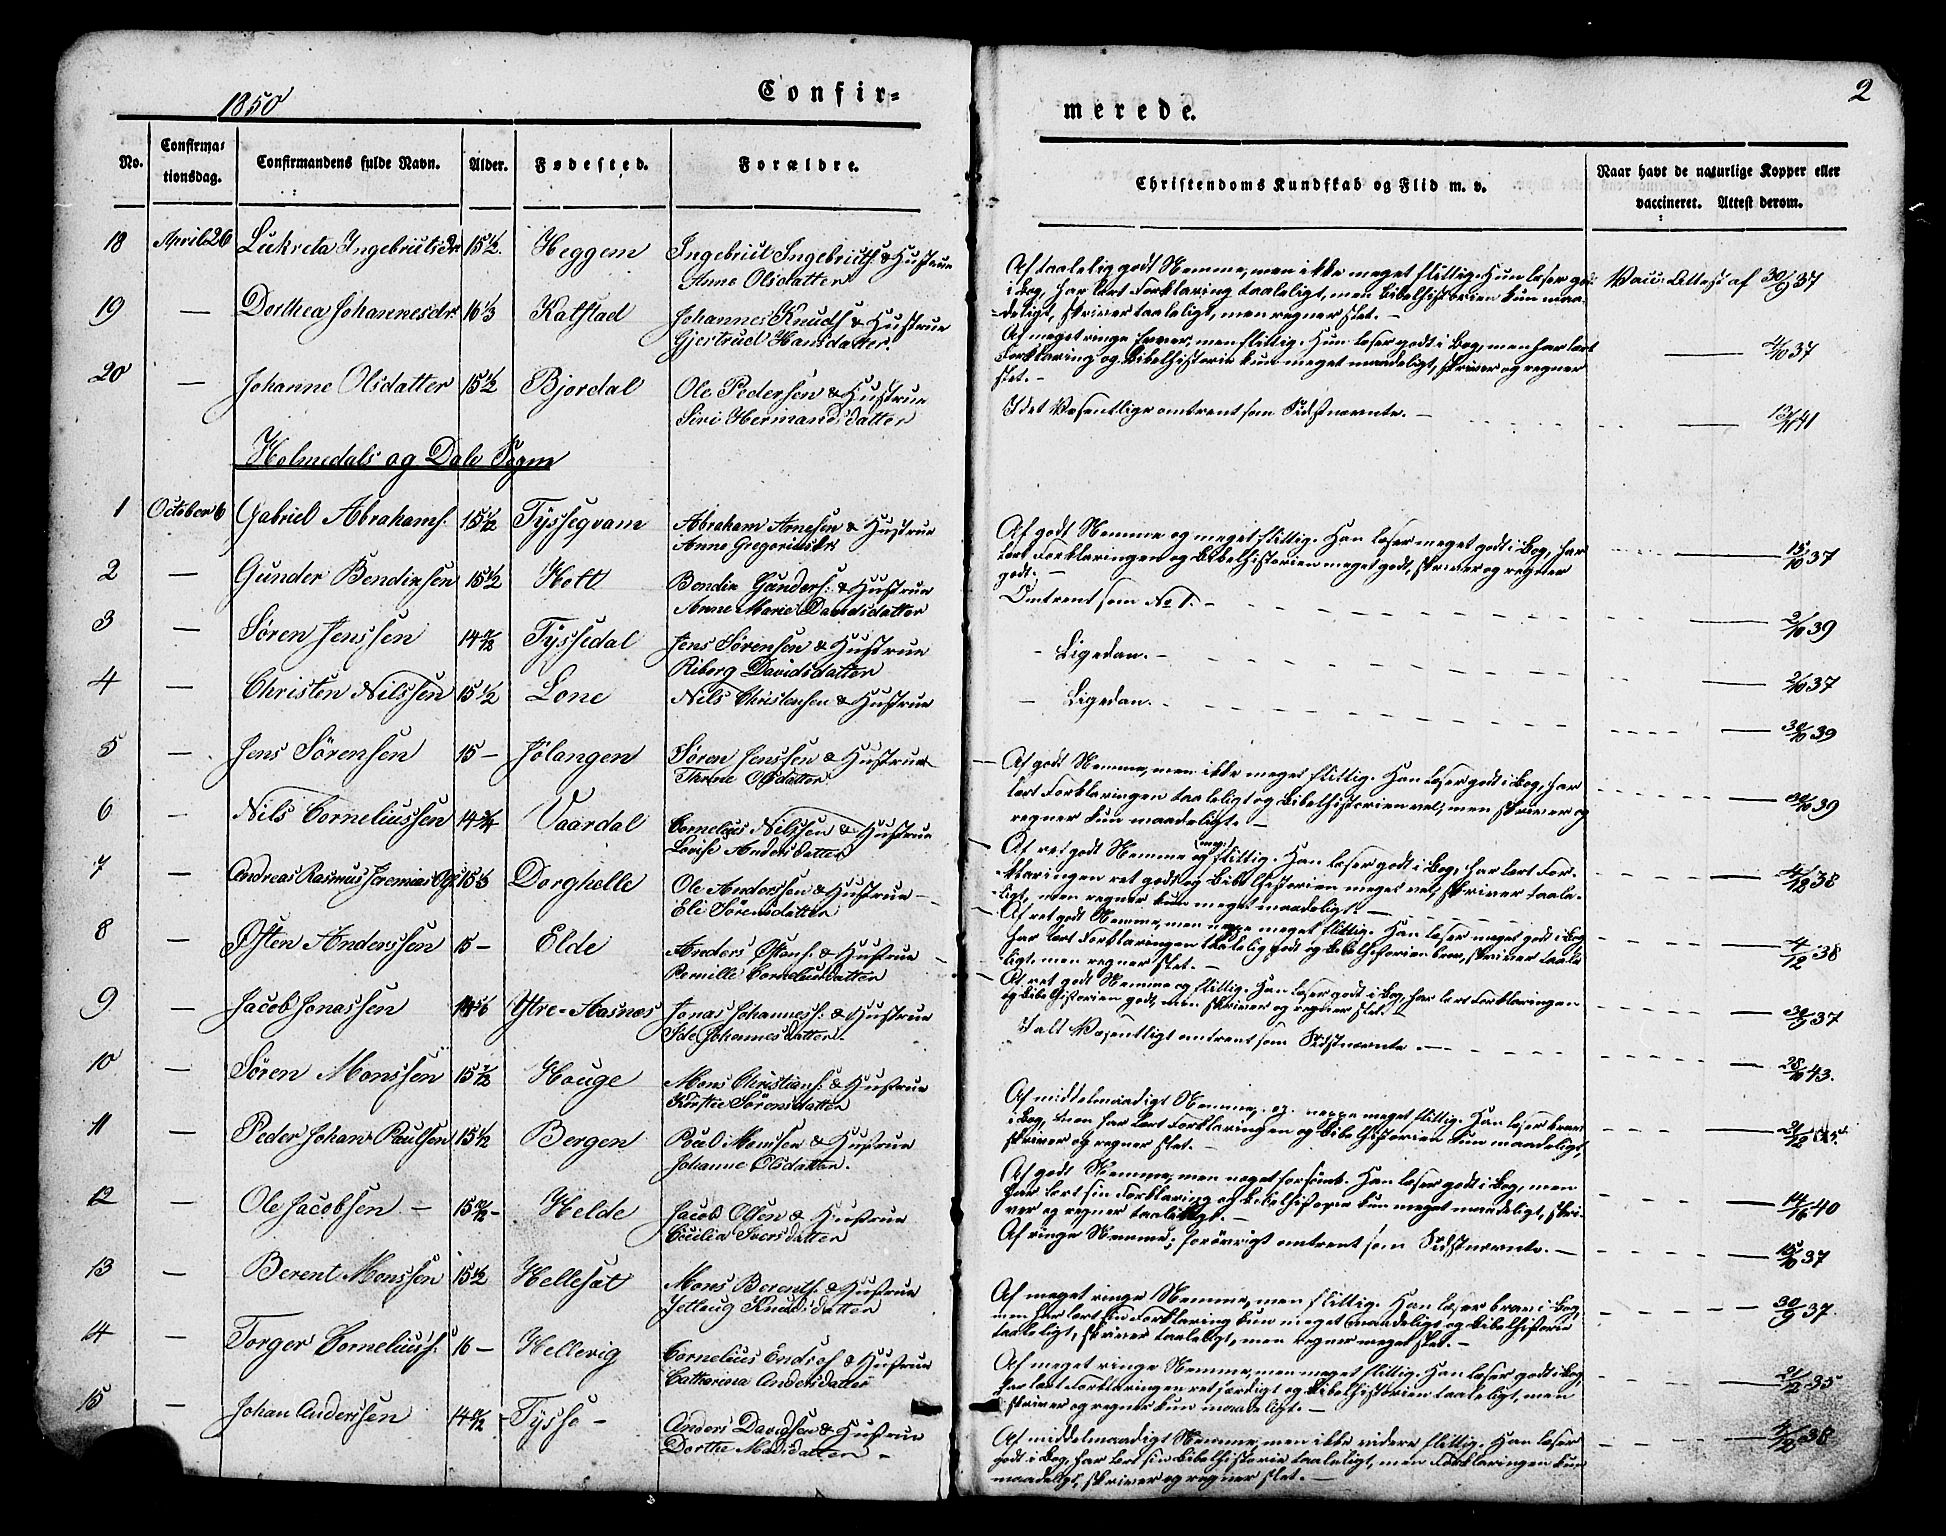 2
1850
Confir-
merede.
No.
Confirma-
tionsdag.
Confirmandens fulde Navn.
Alder.
Fødested.
Forældre.
Christendoms Kundskab og Flid m. v.
Naar havt de naturlige Kopper eller
vaccineret. Attest derom.
18 April 26 Lukreta Ingebritsdr 15 1/2. Heggem Ingebrit Ingebriths. & Hustrue
Anne Olsdatter
Af taalelig godt Nemme, men ikke meget flittig. Hun læser godt
i Bog, har lært Forklaring taaleligt, men Bibelhistorien kun maa-
deligt, skriver taaleligt, men regner slet. -
Vacc: Attest af 30/9 37
19 — Dorthea Johannesdr. 16 1/3 Kalstad Johannes Knuds. & Hustrue
Gjertrud Hansdatter.
Af meget ringe Evner, men flittig. Hun læser godt i Bog, men har lært
Forklaring og Bibelhistorie kun meget maadeligt, skriver og regner
slet. -
— 37
20 — Johanne Olsdatter 15 1/2 Bjordal Ole Pedersen & Hustrue
Siri Hermansdatter
I det Væsentlige omtrent som Sidstnævnte. —
— 41
Holmedals og Dale Sogne
1 October 6 Gabriel Abrahams. 15 1/2 Tyssegvam Abraham Arnesen & Hustrue
Anne Gregoriisdr
Af godt Nemme og meget flittig. Han læser meget godt i Bog, har
lært Forklaringen og Bibelhistorien meget godt, skriver og regner
godt. —
— 15/10 37
2 — Gunder Bendixsen 15 1/2 Holt Bendix Gunders. & Hustrue
Anne Marie Danielsdatter
Omtrent som No 1. -
— 2/10 39
3 — Søren Jenssen 14 Tyssedal Jens Sørensen & Hustrue
Riborg Davidsdatter
- Ligedan. -
— 2/10 37
4 — Christen Nilssen 15 1/2 Lone Nils Christensen & Hustrue
- Ligedan. -
— 30/10 39
5 — Jens Sørensen 15 — Jølangen Søren Jenssen & Hustrue
Thrine Olsdatter
— Af godt Nemme, men ikke meget flittig. Han læser godt i Bog, har
lært Forklaringen taaleligt og Bibelhistorien vel, men skriver og
regner kun maadeligt. —
— 30/10 39
6 — Nils Corneliussen 14 3/4 Vaardal Cornelius Nilssen & Hustrue
Lovise Andersdatter
— Af ret godt Nemme og flittig. Han læser godt i Bog, har lært For-
klaringen ret godt og Bibelhistorien meget vel, skriver taale-
ligt, men regner kun meget maadeligt. —
— 4/12 38
7 — Andreas Rasmus Jeremias 15 1/3 Dorghelle Ole Anderssen & Hustrue —
Eli Sørensdatter
— Af ret godt Nemme, men neppe meget flittig. Han læser meget godt i Bog
har lært Forklaringen taalelig godt og Bibelhistorien brav, skriver taale
ligt, men regner slet. —
— 4/12 38
8 — Østen Anderssen 15 — Elde Anders Østens. & Hustrue —
Pernille Corneliusdatter
— Af ret godt Nemme og flittig. Han læser godt i Bog, har lært Forklaringen
og Bibelhistorien godt, men skriver og regner slet. —
— 30/9 37
9 — Jacob Jonassen Ytre-Aasnæs Jonas Johanness. & Hustrue
Ide Johannesdatter.
I alt Væsentligt omtrent som Sidstnævnte. —
— 28/10 43.
10 — Søren Monssen 15 7/12 Houge Mons Christians. & Hustrue
Kirstie Sørensdatter
Af middelmaadigt Nemme, og neppe meget flittig. Han læser brav
i Bog, men har lært Forklaringen og Bibelhistorien kun maadeligt,
skriver og regner slet. —
11 — Peder Johan Paulsen 15 1/2 Bergen Poul Monssen & Hustrue
Johanne Olsdatter.
Af godt Nemme, men noget forsømt. Han læser godt i Bog, men
har lært sin Forklaring og Bibelhistorie kun meget maadeligt, skri-
ver og regner taaleligt. —
— 14/6 40
12 — Ole Jacobsen — 15 — Helde Jacob Olsen & Hustrue
Cecilia Iversdatter
Af ringe Nemme; forøvrigt omtrent som Sidstnævnte. —
— 15/10 37
13 — Berent Monssen 15 1/2 Hellesæt Mons Berenths. & Hustrue
Jetlaug Knudsdatter
Af meget ringe Nemme, men flittig. Han læser brav i Bog,
men har lært sin Forklaring kun meget maadeligt og Bibelhistorie
taaleligt, skriver taaleligt, men regner meget slet. —
— 30/9 37.
14 — Torger Corneliuss. 16 — Hellevig Cornelius Endres. & Hustrue
Catharina Andersdatter
Af meget ringe Nemme, men meget flittig. Han læser godt i Bog,
har lært Forklaringen ret færdigt og Bibelhistorien taaleligt, men
skriver og regner kun maadeligt. —
— 21/12 35
15 — Johan Anderssen 14 Tysse — Anders Davidsen & Hustrue
Dorthe Madsdatter —
Af middelmaadigt Nemme, men ikke videre flittig. Han læser
godt i Bog, har lært sin Bibelhistorie taaleligt, men Forklaringen kun
maadeligt, skriver og regner slet. —
— 38